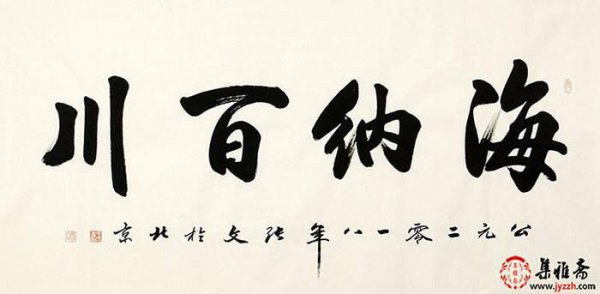 海纳百川
公元二零一八年张文於北京
集雅斋
www.jyzzh.com